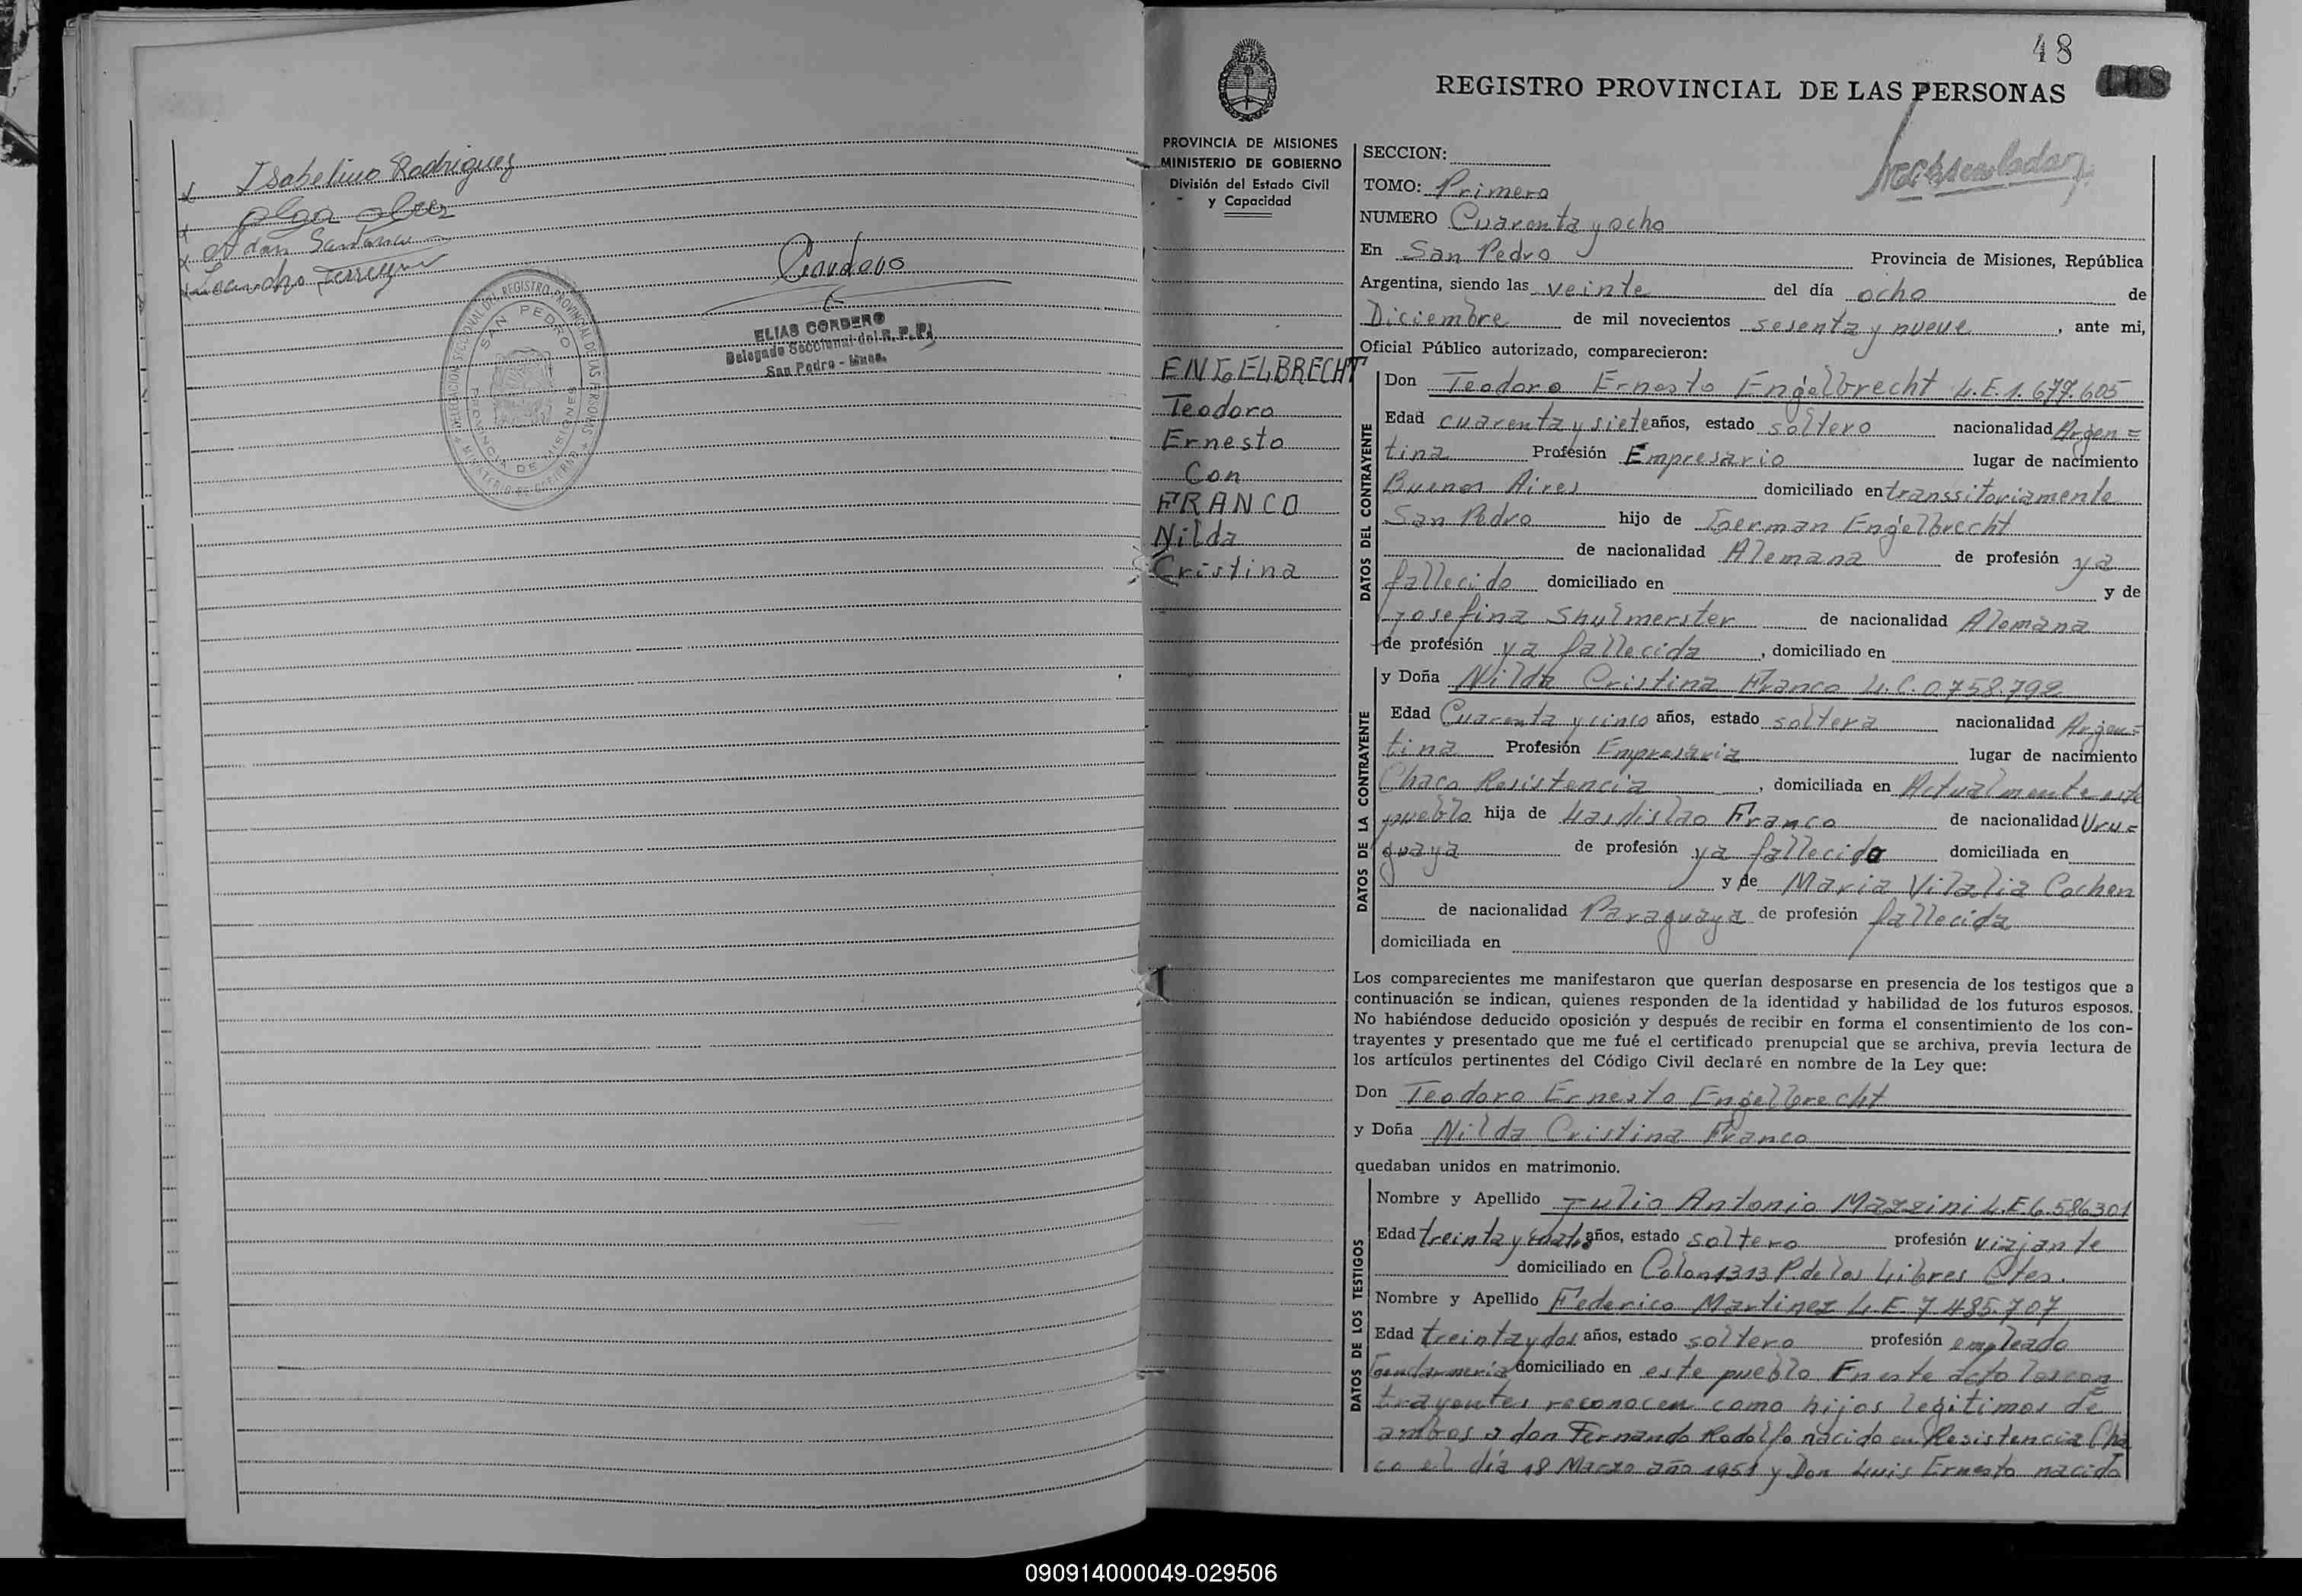 Isabelino Rodriguez
Adan Santana
Leandro
ELIAS CORDERO
Delegado Seccional del R. P. P.
San Pedro - Mnes.
DELEGACION SECCIONAL DEL REGISTRO PROVINCIAL DE LAS PERSONAS
SAN PEDRO
PROVINCIA DE MISIONES
MINISTERIO DE GOBIERNO
48
REGISTRO PROVINCIAL DE LAS PERSONAS
168
PROVINCIA DE MISIONES
MINISTERIO DE GOBIERNO
División del Estado Civil
y Capacidad
ENGELBRECHT
Teodoro
Ernesto
Con
FRANCO
Nilda
Cristina
SECCION:
TOMO: Primero
NUMERO Cuarenta y ocho
En San Pedro Provincia de Misiones, República
Argentina, siendo las veinte del día ocho de
Diciembre de mil novecientos sesenta y nueve, ante mi,
Oficial Público autorizado, comparecieron:
DATOS DEL CONTRAYENTE
Don Teodoro Ernesto Engelbrecht L.E.1.679.605
Edad cuarenta y siete años, estado soltero nacionalidad Argen=
tina Profesión Empresario lugar de nacimiento
Buenos Aires domiciliado en transsitoriamente
San Pedro hijo de German Engelbrecht
de nacionalidad Alemana de profesión ya
fallecido domiciliado en y de
Josefina Shulmerster de nacionalidad Alemana
de profesión ya fallecida, domiciliado en
DATOS DE LA CONTRAYENTE
y Doña Nilda Cristina Franco L.C.0.758.792
Edad Cuarenta y cinco años, estado soltera nacionalidad Argen=
tina Profesión Empresaria lugar de nacimiento
Chaco Resistencia, domiciliada en Actualmente este
pueblo hija de Lasdislao Franco de nacionalidad Uru=
guaya de profesión ya fallecido domiciliada en
y de Maria Vitalia Cochen
de nacionalidad Paraguaya de profesión fallecida
domiciliada en
Los comparecientes me manifestaron que querían desposarse en presencia de los testigos que a
continuación se indican, quienes responden de la identidad y habilidad de los futuros esposos.
No habiéndose deducido oposición y después de recibir en forma el consentimiento de los con-
trayentes y presentado que me fué el certificado prenupcial que se archiva, previa lectura de
los artículos pertinentes del Código Civil declaré en nombre de la Ley que:
Don Teodoro Ernesto Engelbrecht
y Doña Nilda Cristina Franco
quedaban unidos en matrimonio.
DATOS DE LOS TESTIGOS
Nombre y Apellido Julio Antonio Mazzini L.E 6.586301
Edad treinta y cuatro años, estado soltero profesión viajante
domiciliado en Colon 1313 P. de los Libres Ctes.
Nombre y Apellido Federico Martinez L.E 7.485.707
Edad treinta y dos años, estado soltero profesión empleado
Gendarmeria domiciliado en este pueblo En este acto los con
trayentes reconocen como hijos legitimos de
ambos a don Fernando Rodolfo nacido en Resistencia Cha
co el día 18 Marzo año 1951 y Don Luis Ernesto nacido
090914000049-029506